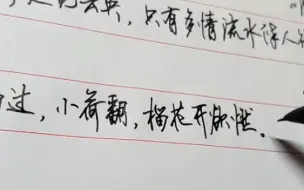 ，只有多情流水伴人
过，小荷翻，榴花开欲燃。